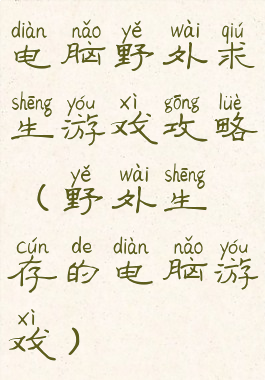 diàn nǎo yě wài qiú
电脑野外求
shēng yóu xì gōng lüè
生游戏攻略
yě wài shēng
(野外生
cún de diàn nǎo yóu
存的电脑游
xì
戏)